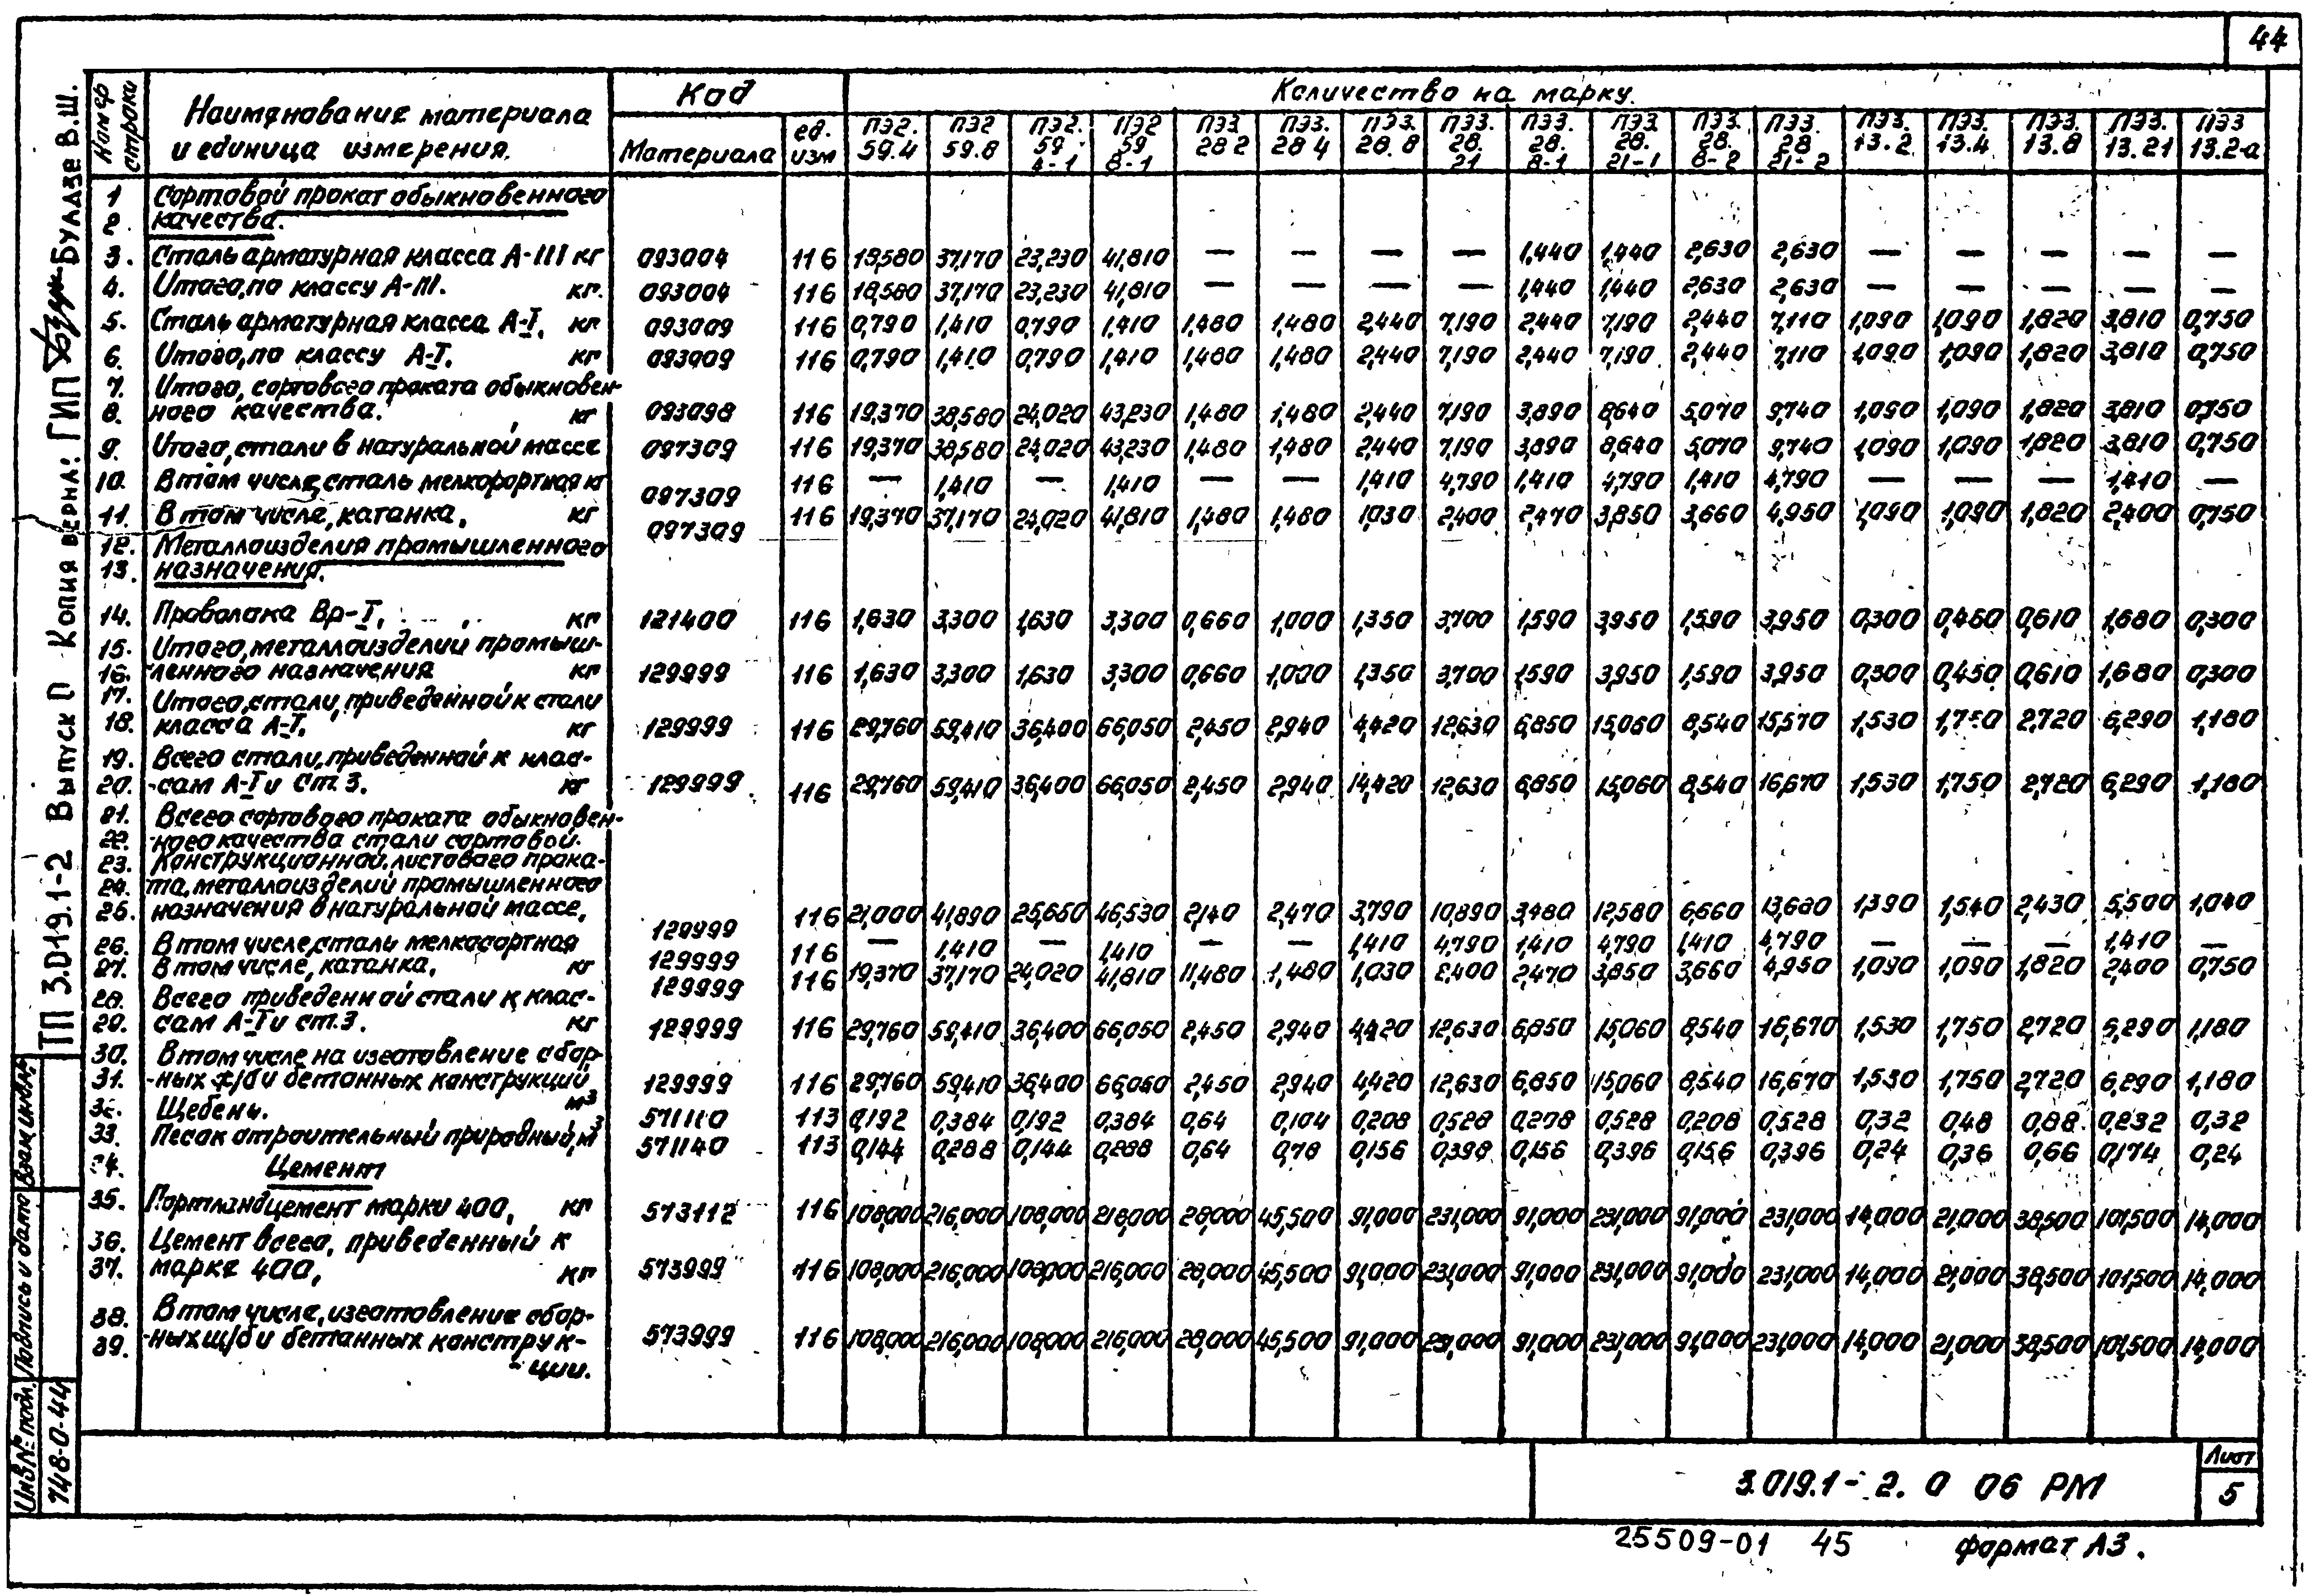 44
Номер строки
Наименование материала и единица измерения.
Код
Количество на марку.
Материала
ед. изм
ПЭ2. 59.4
ПЭ2 59.8
ПЭ2. 59 4-1
ПЭ2 59 8-1
ПЭ3 28 2
ПЭ3. 28 4
ПЭ3. 28.8
ПЭ3. 28. 21
ПЭ3. 28. 8-1
ПЭ3 28. 21-1
ПЭ3 28. 8-2
ПЭ3. 28 21-2
ПЭ3. 13.2
ПЭ3. 13.4
ПЭ3. 13.8
ПЭ3. 13.21
ПЭ3 13.2-а
1 Сортовой прокат обыкновенного
2. качества.
3. Сталь арматурная класса А-III кг 093004 116 18,580 37,170 23,230 41,810 — — — — 1,440 1,440 2,630 2,630 — — — — —
4. Итого, по классу А-III. кг. 093004 116 18,580 37,170 23,230 41,810 — — — — 1,440 1,440 2,630 2,630 — — — — —
5. Сталь арматурная класса А-I, кг 093009 116 0,790 1,410 0,790 1,410 1,480 1,480 2,440 7,190 2,440 7,190 2,440 7,110 1,090 1,090 1,820 3,810 0,750
6. Итого, по классу А-I, кг 093009 116 0,790 1,410 0,790 1,410 1,480 1,480 2,440 7,190 2,440 7,190 2,440 7,110 1,090 1,090 1,820 3,810 0,750
7. Итого, сортового проката обыкновен-
8. ного качества. кг 093098 116 19,370 38,580 24,020 43,230 1,480 1,480 2,440 7,190 3,890 8,640 5,070 9,740 1,090 1,090 1,820 3,810 0,750
9. Итого, стали в натуральной массе 097309 116 19,370 38,580 24,020 43,230 1,480 1,480 2,440 7,190 3,890 8,640 5,070 9,740 1,090 1,090 1,820 3,810 0,750
10. В том числе, сталь мелкофортная кг 097309 116 — 1,410 — 1,410 — — 1,410 4,790 1,410 4,790 1,410 4,790 — — — 1,410 —
11. В том числе, катанка, кг 097309 116 19,370 37,170 24,020 41,810 1,480 1,480 1,030 2,400 2,470 3,850 3,660 4,950 1,090 1,090 1,820 2,400 0,750
12. Металлоизделия промышленного
13. назначения.
14. Проволока Вр-I, кг 121400 116 1,630 3,300 1,630 3,300 0,660 1,000 1,350 3,700 1,590 3,950 1,590 3,950 0,300 0,450 0,610 1,680 0,300
15. Итого, металлоизделий промыш-
16. ленного назначения кг 129999 116 1,630 3,300 1,630 3,300 0,660 1,000 1,350 3,700 1,590 3,950 1,590 3,950 0,300 0,450 0,610 1,680 0,300
17. Итого, стали, приведенной к стали
18. класса А-I, кг 129999 116 29,760 59,410 36,400 66,050 2,450 2,940 4,420 12,630 6,850 15,060 8,540 15,570 1,530 1,750 2,720 6,290 1,180
19. Всего стали, приведенной к клас-
20. -сам А-I и ст. 3. кг 129999 116 29,760 59,410 36,400 66,050 2,450 2,940 14,420 12,630 6,850 15,060 8,540 16,670 1,530 1,750 2,720 6,290 1,180
21. Всего сортового проката обыкновен-
22. -ного качества стали сортовой.
23. Конструкционной, листового прока-
24. та, металлоизделий промышленного
25. назначения в натуральной массе, 129999 116 21,000 41,890 25,650 46,530 2,140 2,470 3,790 10,890 3,480 12,580 6,660 13,680 1,390 1,540 2,430 5,500 1,040
26. В том числе, сталь мелкосортная 129999 116 — 1,410 — 1,410 — — 1,410 4,790 1,410 4,790 1,410 4,790 — — — 1,410 —
27. В том числе, катанка, кг 129999 116 19,370 37,170 24,020 41,810 11,480 1,480 1,030 2,400 2,470 3,850 3,660 4,950 1,090 1,090 1,820 2,400 0,750
28. Всего приведенной стали к клас-
29. сам А-I и ст.3. кг 129999 116 29,760 59,410 36,400 66,050 2,450 2,940 4,420 12,630 6,850 15,060 8,540 16,670 1,530 1,750 2,720 6,290 1,180
30. В том числе на изготовление сбор-
31. -ных ж/б и бетонных конструкций, 129999 116 29,760 59,410 36,400 66,050 2,450 2,940 4,420 12,630 6,850 15,060 8,540 16,670 1,530 1,750 2,720 6,290 1,180
32. Щебень. м3 571110 113 0,192 0,384 0,192 0,384 0,64 0,104 0,208 0,528 0,208 0,528 0,208 0,528 0,32 0,48 0,88 0,232 0,32
33. Песок строительный природный, м3 571140 113 0,144 0,288 0,144 0,288 0,64 0,78 0,156 0,398 0,156 0,396 0,156 0,396 0,24 0,36 0,66 0,174 0,24
34. Цемент
35. Портландцемент марки 400, кг 573112 116 108,000 216,000 108,000 216,000 28,000 45,500 91,000 231,000 91,000 231,000 91,000 231,000 14,000 21,000 38,500 101,500 14,000
36. Цемент всего, приведенный к
37. марке 400, кг 573999 116 108,000 216,000 108,000 216,000 28,000 45,500 91,000 231,000 91,000 231,000 91,000 231,000 14,000 21,000 38,500 101,500 14,000
38. В том числе, изготовление сбор-
39. -ных ж/б и бетонных конструк- 573999 116 108,000 216,000 108,000 216,000 28,000 45,500 91,000 231,000 91,000 231,000 91,000 231,000 14,000 21,000 38,500 101,500 14,000
-ции.
ТП 3.019.1-2 Выпуск 0 Копия верна: ГИП Буладзе В.Ш.
Взам.инв.№
Подпись и дата
Инв № подл.
748-0-44
3.019.1-2.0 06 РМ
Лист
5
25509-01 45 формат А3.